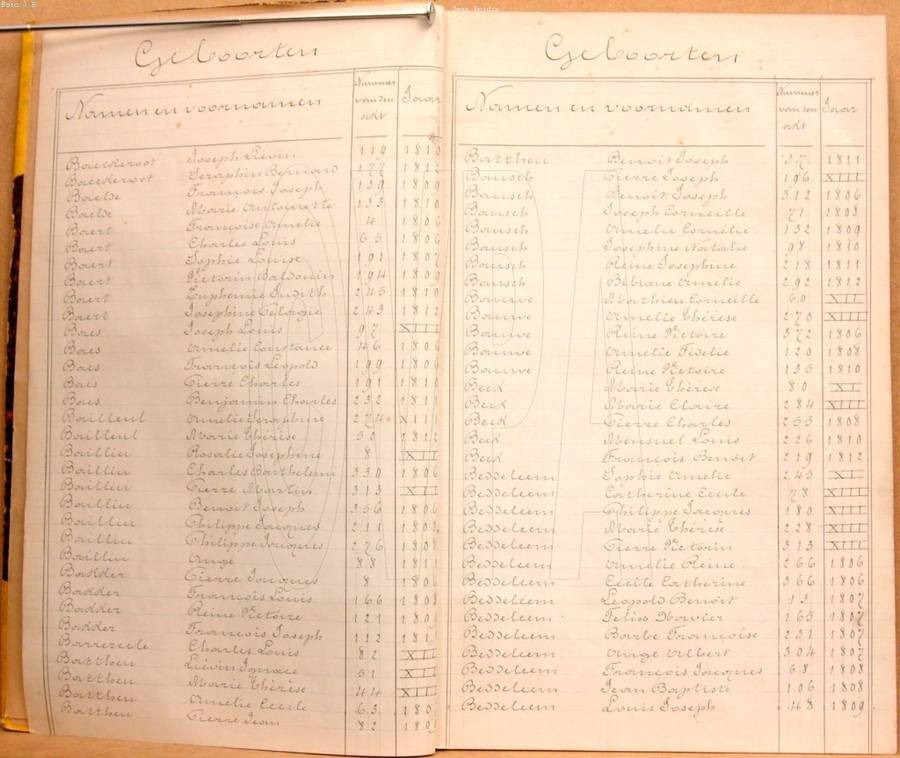 Geboorten
Namen en voornamen Nummer van den acht Jaar
Joseph Liévin 119
Seraphin Bernard 177 1812
François Joseph 139 1809
Marie Antoinette 133 1810
Baert Françoise Amelie 4 1806
Baert Charles Louis 65 1806
Baert Sophie Louise 191 1807
Baert Victorin Baldouin 194 1809
Baert Euphemie Judith 245 1810
Baert Josephine Pelagie 243 1812
Baes Joseph Louis 97 XIII
Baes Amelie Constance 46 1806
Baes François Leopold 199 1806
Baes Pierre Charles 191 1810
Baes Benjamin Charles 232 1811
Bailleul Amelie Seraphine 274 XIII
Bailleul Marie Thérèse 50 1812
Baillieu Rosalie Josephine 8 XII
Baillieu Charles Barthelemi 330 1806
Baillieu Pierre Martin 313 XII
Baillieu Benoit Joseph 356 1806
Baillieu Philippe Jacques 211
Baillieu Philippe Jacques 276
Baillieu Ange 88 1811
Badder Pierre Jacques 8 1806
Badder François Louis 166
Badder Reine Victoire 121
Badder François Joseph 112
Charles Louis 82 XII
Battheu Liévin Ignace 51 XIII
Battheu Marie Thérèse 44 XIII
Battheu Amelie Cecile 63
Battheu Pierre Jean 82
Geboorten
Namen en voornamen Nummer van den acht Jaar
Battheu Benoit Joseph 37 1811
Bausch Pierre Joseph 196 XIII
Bausch Benoit Joseph 312 1806
Bausch Joseph Corneille 71 1808
Bausch Amelie Cornelie 132 1809
Bausch Josephine Natalie 98 1810
Bausch Reine Josephine 218 1811
Bausch Bibiane Amelie 292 1812
Bauwe Mathieu Corneille 60 XII
Bauwe Amelie Thérèse 270 XIII
Bauwe Reine Victoire 372 1806
Bauwe Amelie Fidelie 120 1808
Bauwe Reine Victoire 135 1810
Beck Marie Thérèse 80 XI
Beck Marie Claire 284 XIII
Beck Pierre Charles 255 1808
Beck Mensuel Louis 226 1810
Beck François Benoit 219 1812
Besseleem Sophie Amelie 245 XI
Besseleem Catherine Cecile 78 XIII
Besseleem Philippe Jacques 180 XIII
Besseleem Marie Thérèse 228 XIII
Besseleem Pierre Victorin 313 XIII
Besseleem Amelie Reine 266 1806
Besseleem Cecile Catherine 366 1806
Besseleem Leopold Benoit 13 1807
Besseleem Felix Xavier 165 1807
Besseleem Barbe Françoise 251 1807
Besseleem Ange Albert 304 1807
Besseleem François Jacques 68 1808
Besseleem Jean Baptiste 106 1808
Besseleem Louis Joseph 48 1809